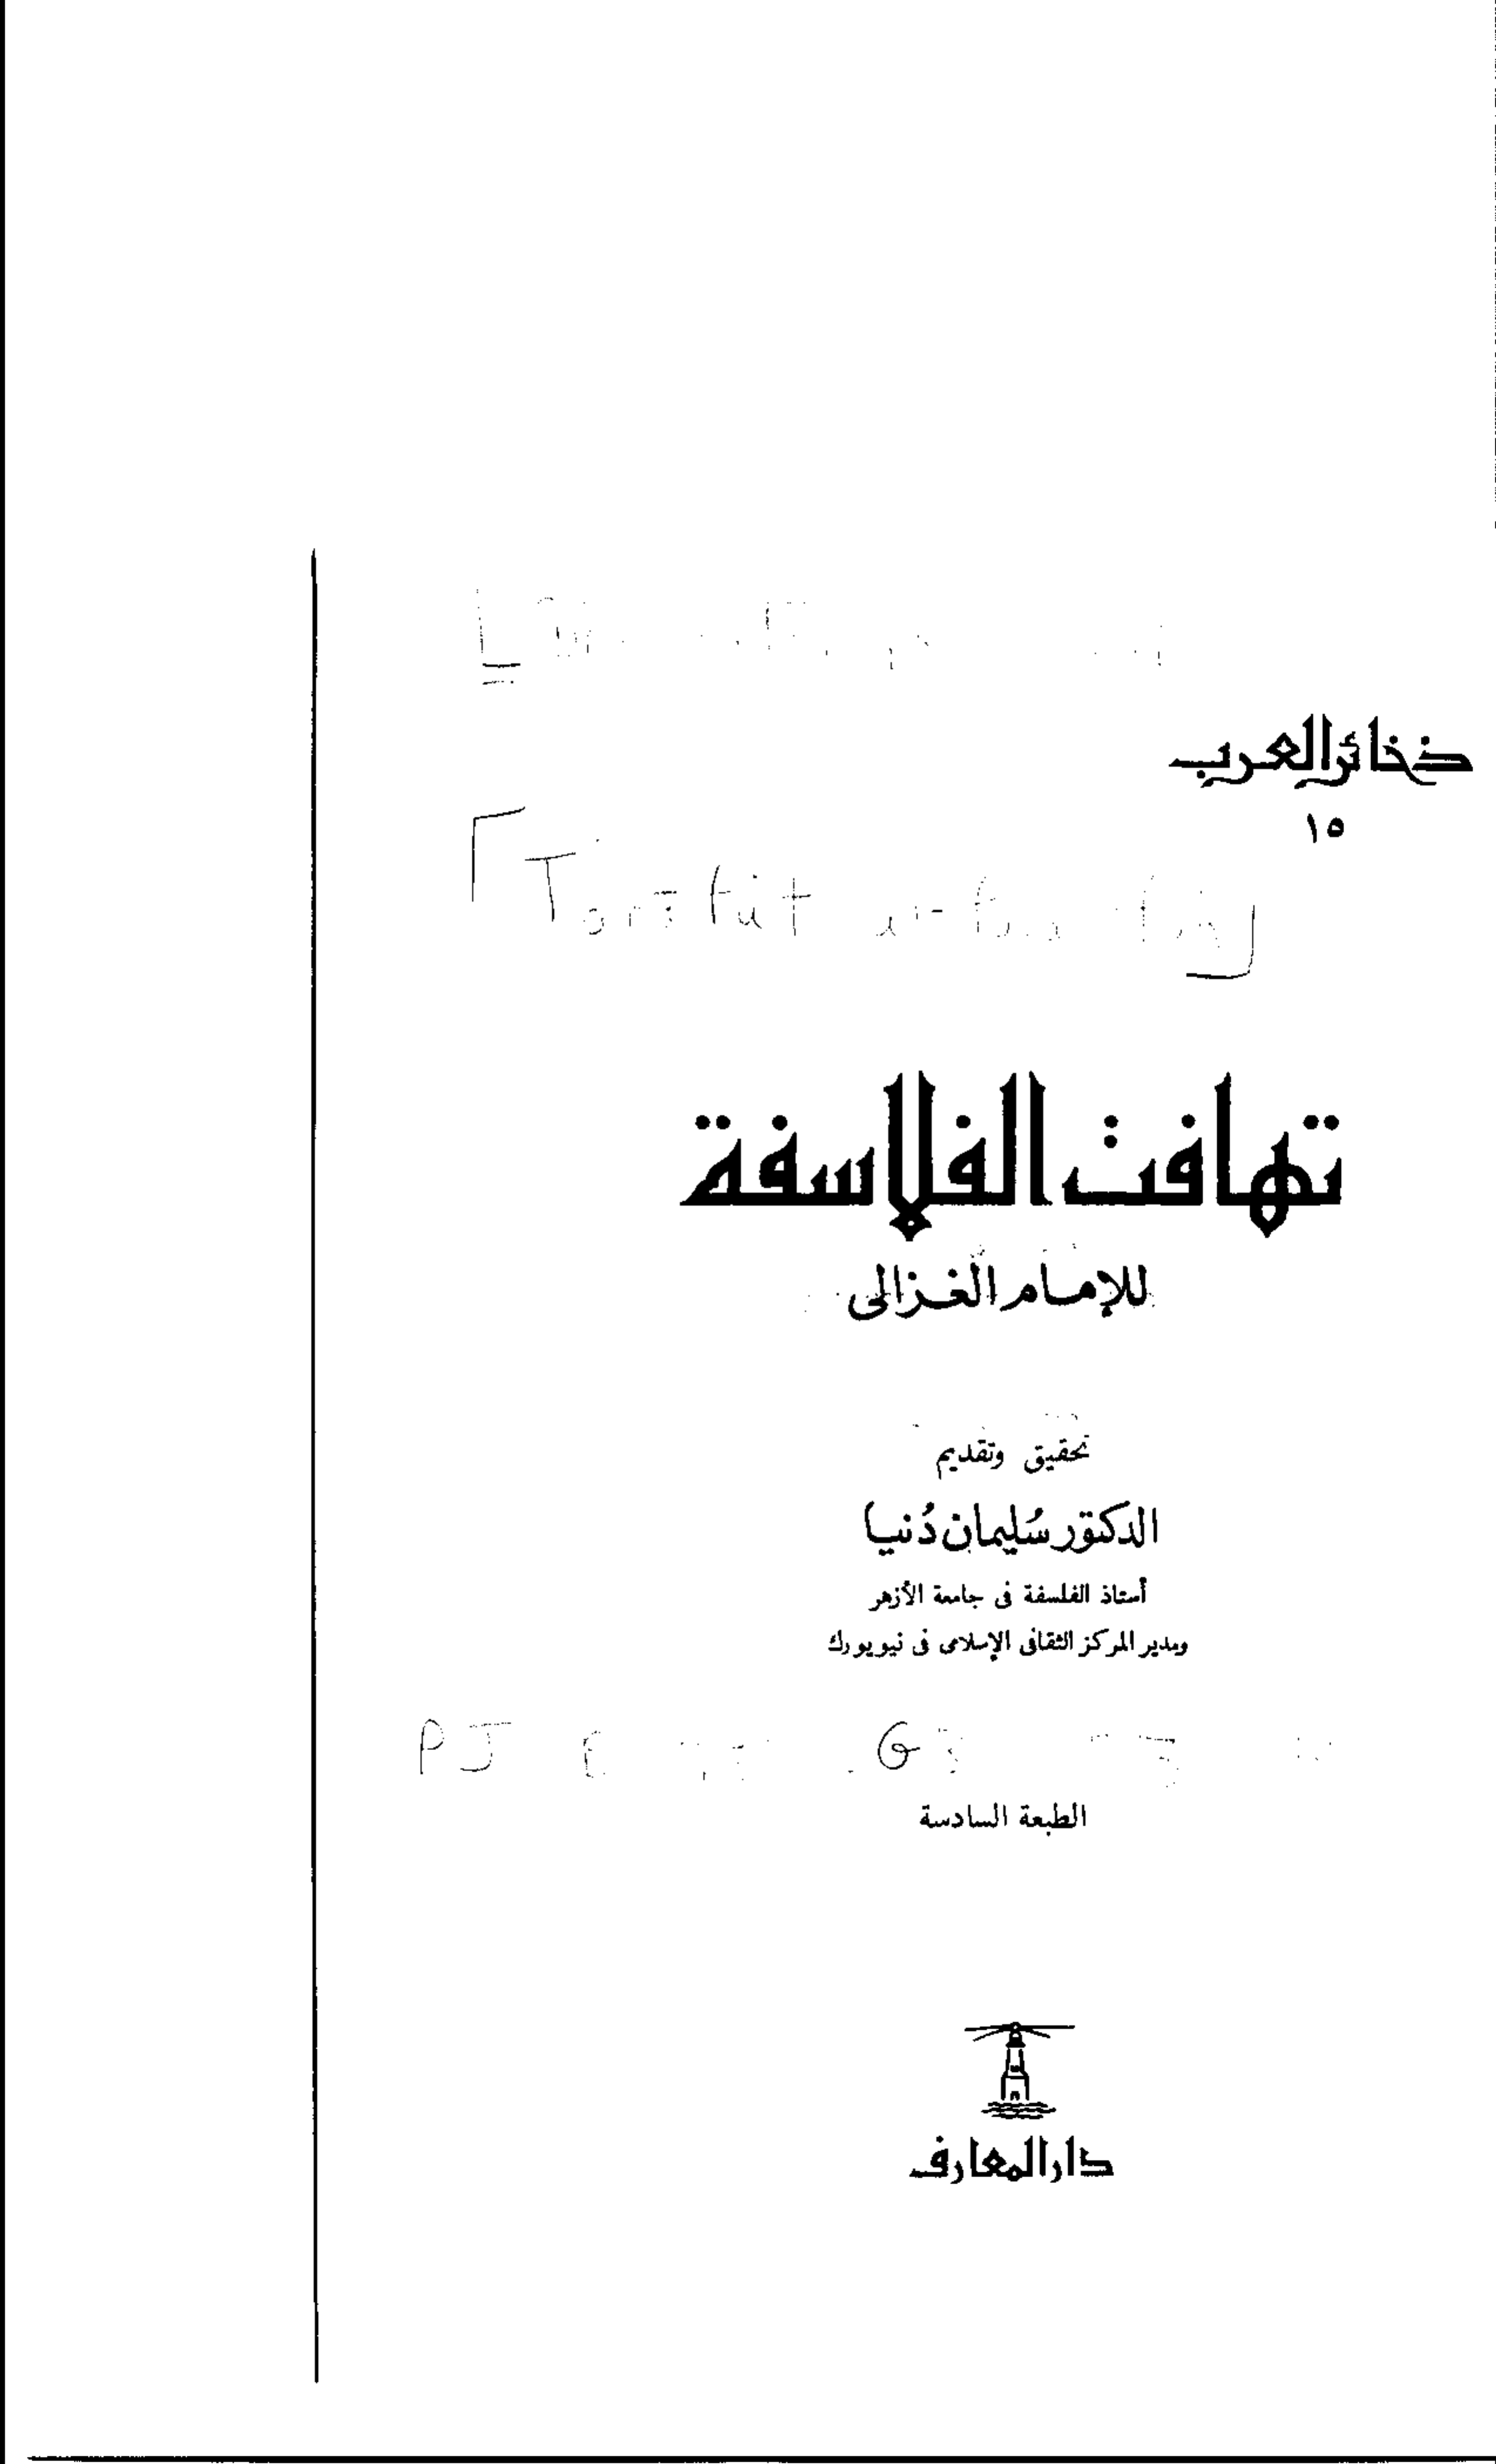 ذخائر العرب
١٥
تهافت الفلاسفة
للإمام الغزالى
تحقيق وتقديم
الدكتور سُليمان دُنيا
أستاذ الفلسفة فى جامعة الأزهر
ومدير المركز الثقافى الإسلامى فى نيويورك
PJ
الطبعة السادسة
دار المعارف